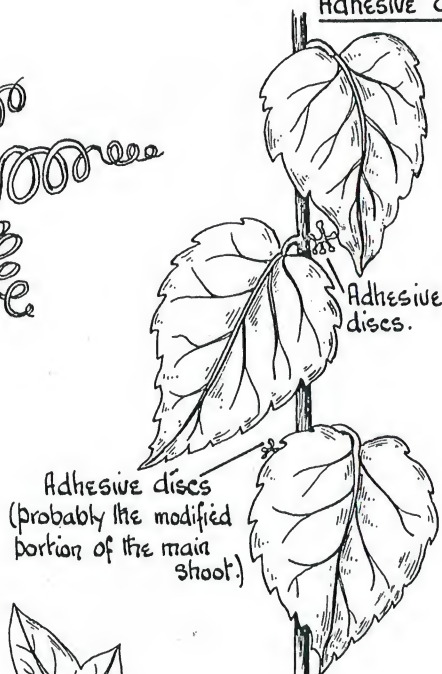 Adhesive
Adhesive
discs.
Adhesive discs
(probably the modified
portion of the main
shoot.)